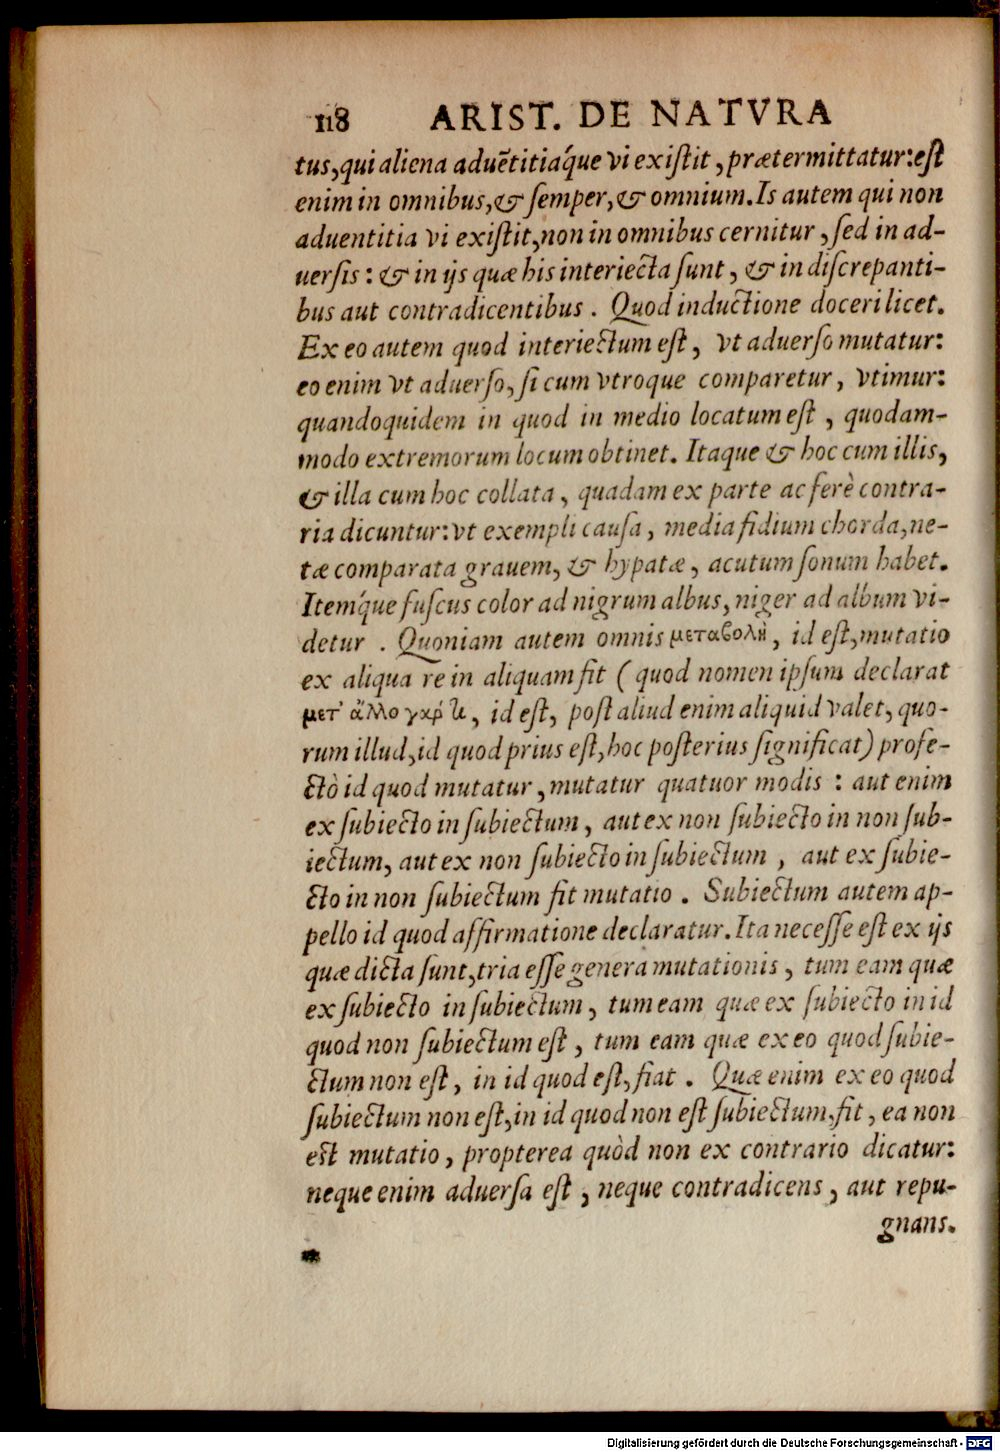 118 ARIST. DE NATVRA
tus, qui aliena aduẽtitiáque vi existit, prætermittatur: est
enim in omnibus, & semper, & omnium. Is autem qui non
aduentitia vi existit, non in omnibus cernitur, sed in ad-
uersis: & in ijs quæ his interiecta sunt, & in discrepanti-
bus aut contradicentibus. Quod inductione doceri licet.
Ex eo autem quod interiectum est, vt aduerso mutatur:
eo enim vt aduerso, si cum vtroque comparetur, vtimur:
quandoquidem in quod in medio locatum est, quodam-
modo extremorum locum obtinet. Itaque & hoc cum illis,
& illa cum hoc collata, quadam ex parte ac ferè contra-
ria dicuntur: vt exempli causa, media fidium chorda, ne-
tæ comparata grauem, & hypatæ, acutum sonum habet.
Itemq́ue fuscus color ad nigrum albus, niger ad album vi-
detur. Quoniam autem omnis μεταβολὴ, id est, mutatio
ex aliqua re in aliquam fit (quod nomen ipsum declarat
μετ' ἄλλο γάρ τι, id est, post aliud enim aliquid valet, quo-
rum illud, id quod prius est, hoc posterius significat) profe-
ctò id quod mutatur, mutatur quatuor modis: aut enim
ex subiecto in subiectum, aut ex non subiecto in non sub-
iectum, aut ex non subiecto in subiectum, aut ex subie-
cto in non subiectum fit mutatio. Subiectum autem ap-
pello id quod affirmatione declaratur. Ita necesse est ex ijs
quæ dicta sunt, tria esse genera mutationis, tum eam quæ
ex subiecto in subiectum, tum eam quæ ex subiecto in id
quod non subiectum est, tum eam quæ ex eo quod subie-
ctum non est, in id quod est, fiat. Quæ enim ex eo quod
subiectum non est, in id quod non est subiectum, fit, ea non
est mutatio, propterea quòd non ex contrario dicatur:
neque enim aduersa est, neque contradicens, aut repu-
gnans.
Digitalisierung gefördert durch die Deutsche Forschungsgemeinschaft - DFG